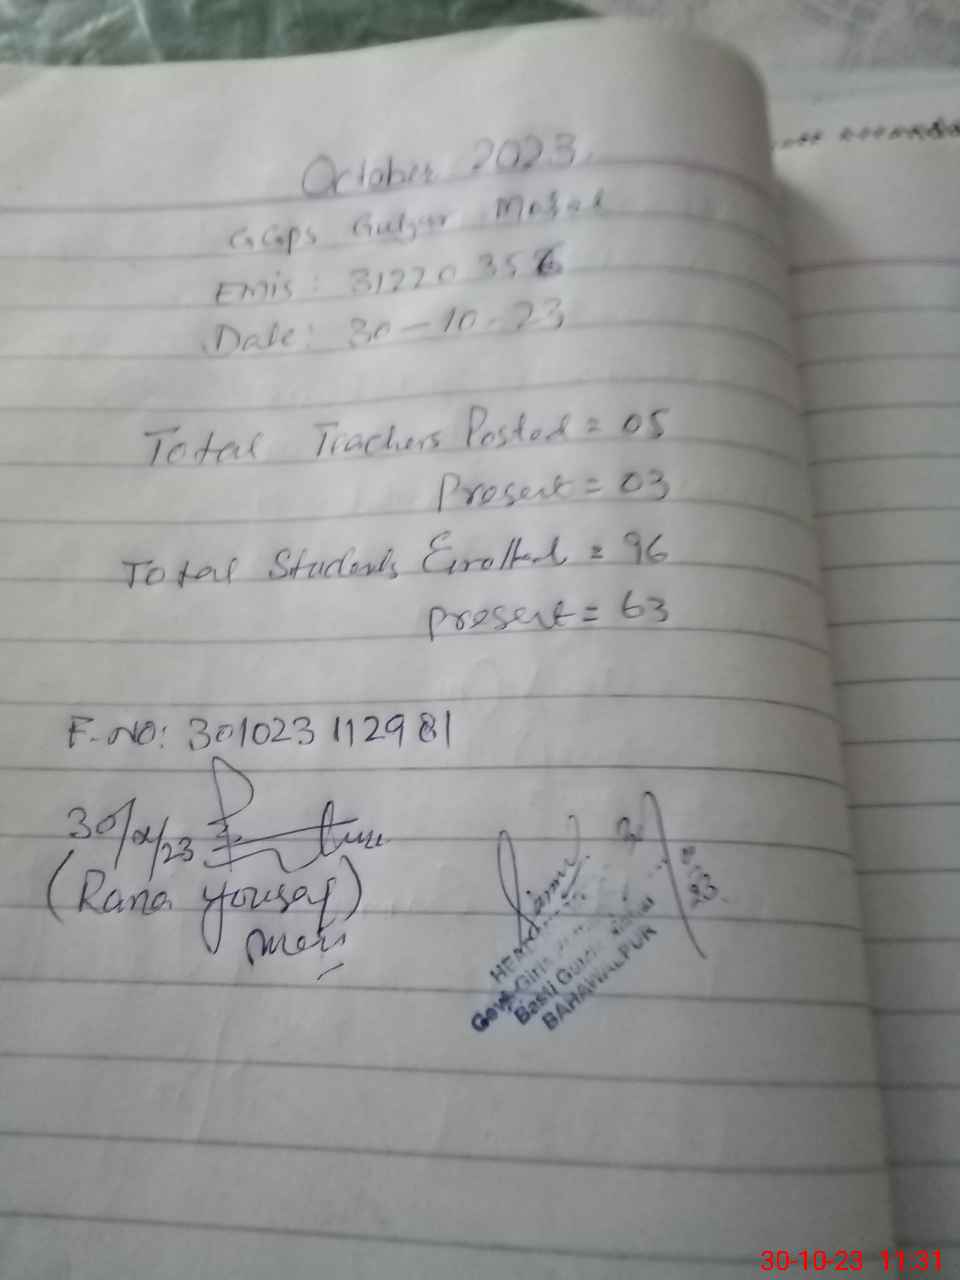 October 2023
GGPS Gulzar Mahal
EMIS: 31220356
Date: 30-10-23
Total Teachers Posted = 05
Present = 03
Total Students Enrolled = 96
Present = 63
F-NO: 301023112981
30/10/23
(Rana Yousaf)
HEAD
Govt. Girls
Basti
BAHAWALPUR
30-10-23 11:31